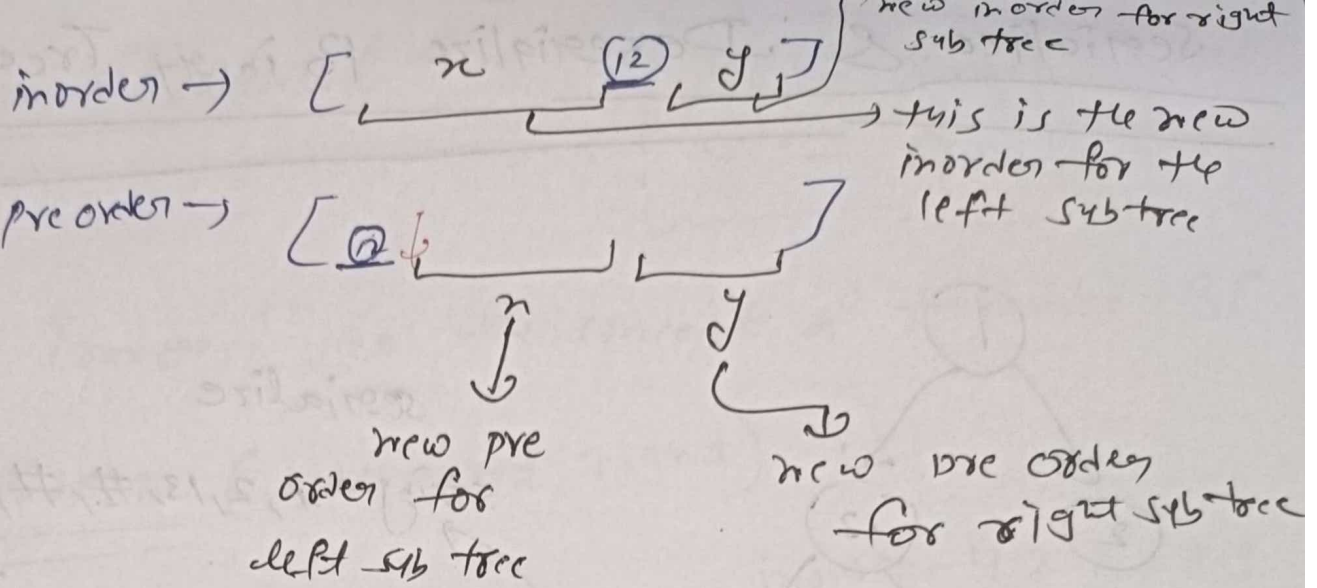 new inorder for right
sub tree
inorder → [ x (12) y ]
this is the new
inorder for the
left subtree
preorder → [ ]
x y
new pre
order for
left sub tree
new pre order
for right subtree